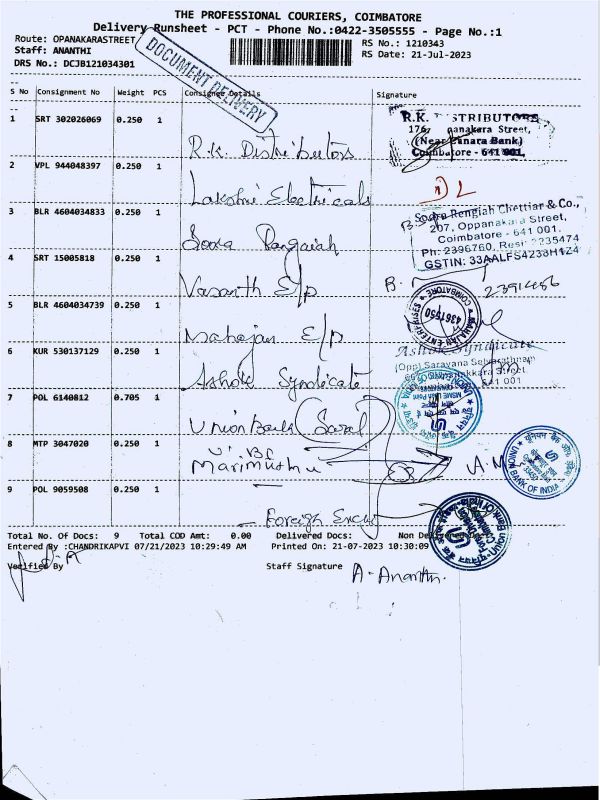 THE PROFESSIONAL COURIERS, COIMBATORE
Delivery Runsheet - PCT - Phone No.:0422-3505555 - Page No.:1
Route: OPANAKARASTREET
RS No.: 1210343
Staff: ANANTHI
RS Date: 21-Jul-2023
DRS No.: DCJB121034301
DOCUMENT DELIVERY
S No Consignment No Weight PCS Consignee Details Signature
1 SRT 302026069 0.250 1
R.K. Distributors
R.K. STRIBUTORS
176, panakara Street,
(Near Canara Bank)
Coimbatore - 641 001.
2 VPL 944048397 0.250 1
Lakshmi Electricals
3 BLR 4604034833 0.250 1
Rengiah Chettiar & Co.,
207, Oppanakara Street,
Coimbatore - 641 001.
Ph: 2396760, Resi: 2235474
GSTIN: 33AALFS4233H1Z4
4 SRT 15005818 0.250 1
Vasanth E/p
2391486
5 BLR 4604034739 0.250 1
Mahajan E/p
MAHAJAN ENTERPRISES
COIMBATORE
4361550
6 KUR 530137129 0.250 1
Ashok Syndicate
Ashok Syndicate
(Opp) Saravana Selvarathnam
7 POL 6140812 0.705 1
Union Bank
8 MTP 3047020 0.250 1
Marimuthu
A.M
UNION BANK OF INDIA
9 POL 9059508 0.250 1
Foreign
Union Bank Of India
Total No. Of Docs: 9 Total COD Amt: 0.00 Delivered Docs: Non Delivered Docs:
Entered By :CHANDRIKAPVI 07/21/2023 10:29:49 AM Printed On: 21-07-2023 10:30:09
Verified By Staff Signature
A. Ananthi.